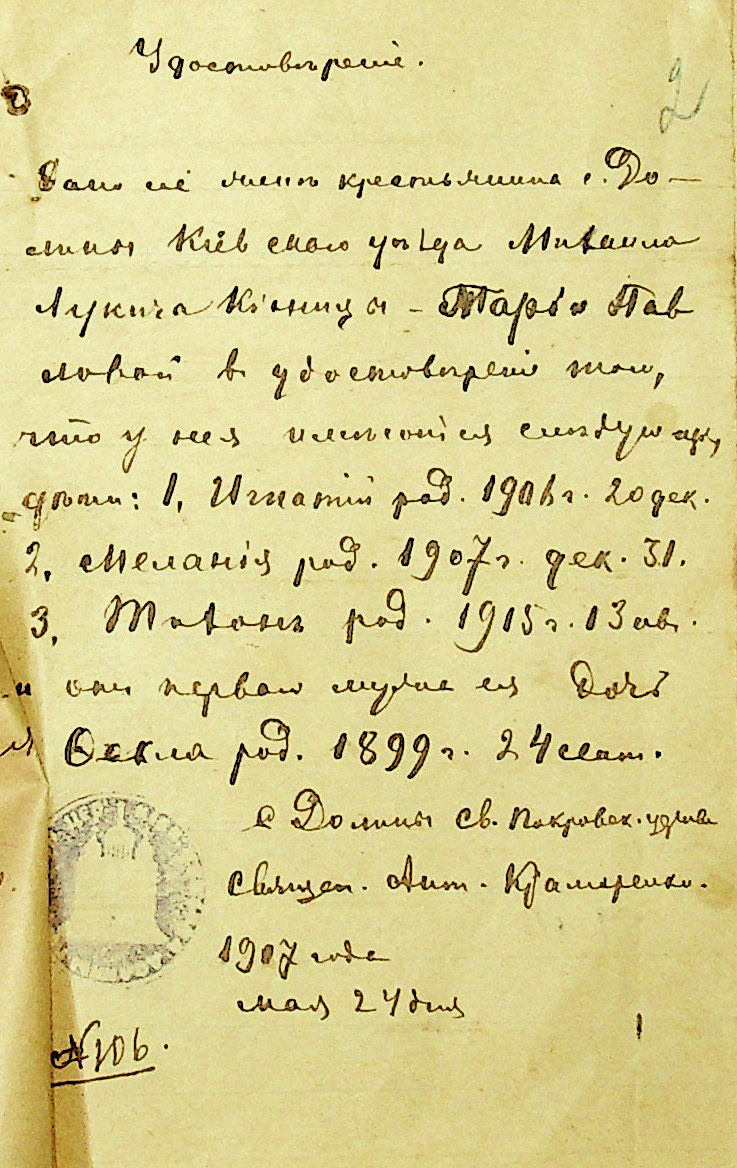 Удостовѣреніе.
2
Дано сіе женѣ крестьянина с. До-
лины Кіевскаго уѣзда Михаила
Лукича Кіяницы - Маріи Пав
ловой въ удостовѣреніе том,
что у нея имѣются слѣдующ.
дѣти: 1, Игнатій род. 1906 г. 20 дек.
2, Меланія род. 1907 г. дек. 31.
3, Тихонъ род. 1915 г. 13 ав.
и отъ перваго мужа ея дочь
Ѳекла род. 1899 г. 24 сент.
с Долины Св. Покровск. церкви
Священ. Ант. Крамаренко.
1907 года
мая 24 дня
№ 106.